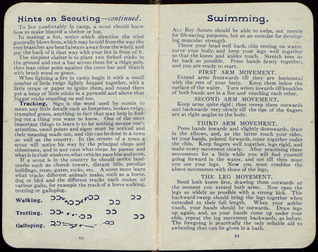 Hints on Scouting—continued.
To live comfortably in camp, a scout should know
how to make himself a shelter to sleep in.
In making a hut, notice which direction the wind
generally blows from, which may be told from the way the
tree branches are bent (always away from the wind), and
put the back of it that way with your fire in front of it.
The simplest shelter is to plant two forked sticks in
the ground and rest a bar across from for a ridge pole,
then lean other poles against it, and cover them over
with brush wood or grass.
When lighting a fire in camp begin it with a small
number of little chips really heaped together, with a
little straw or paper to ignite them, and round them
put a heap of little sticks in a pyramid and above them
bigger sticks standing on end too.
Tracking. Sign is the word used by scouts to
mean any little details such as footprints, broken twigs,
trampled grass, anything in fact that may help in find-
ing out a thing you want to know. One of the most
important things that a scout has to learn is to let nothing
attention, small points and signs must be noticed and
their meaning made out, and this can be done in a town
as well as the country. For instance, in a town, a
scout will notice his way by the principal shops and
side streets, and in any case what shops he passes and
what is in their windows, also vehicles, peoples' faces, etc.
If a scout is in the country he should notice land-
marks such as church towers, distant hills, peculiar
buildings, trees, gates, rocks, etc. A scout must learn
what tracks different animals make, such as a horse,
dog or bird and the different tracks each makes at
various gaits, for example the track of a horse walking,
trotting or galloping.
Walking.
Trotting.
Galloping.
Swimming.
ALL Boy Scouts should be able to swim, not merely
for life-saving purposes, but as an exercise for develop-
ing muscular strength.
Throw your head well back, chin resting on water,
curve your body, and keep your legs well together
so that the knees and ankles touch. Stretch toes as
far back as possible. Press hands firmly together,
and you are ready to start.
FIRST ARM MOVEMENT.
Extend arms forwards till they are horizontal
with the rest of your body. Keep them below the
surface of the water. Turn wrists inwards till knuckles of
both hands are in a line and touching each other.
SECOND ARM MOVEMENT.
Keep arms quite rigid; then sweep them outwards
and backwards very slowly till the tips of the fingers
are at right angles to the body.
THIRD ARM MOVEMENT.
Press hands inwards and slightly downwards, draw
in the elbows, and, as the latter touch your sides,
let your hands, pushed forwards, come together under
the chin. Keep fingers well together, legs rigid, and
make every movement slowly. After practising these
movements a little while you will find yourself
going forward in the water, and will then need to
use your legs. Now you must combine the
above movements with those of the legs.
THE LEG MOVEMENT.
Bend both knees first, drawing them outwards at
the moment you extend both arms. Now open the
legs as widely as possible with a strong kick. This
backward sweep should bring the legs together when
extended to their full length. When your ankles
touch, your hands should be outstretched. Draw legs
up again, and, as your hands come up under your
chin, repeat the leg movement backwards, as before.
The foregoing is practically the only reliable aid to
swimming that can be given in a book.